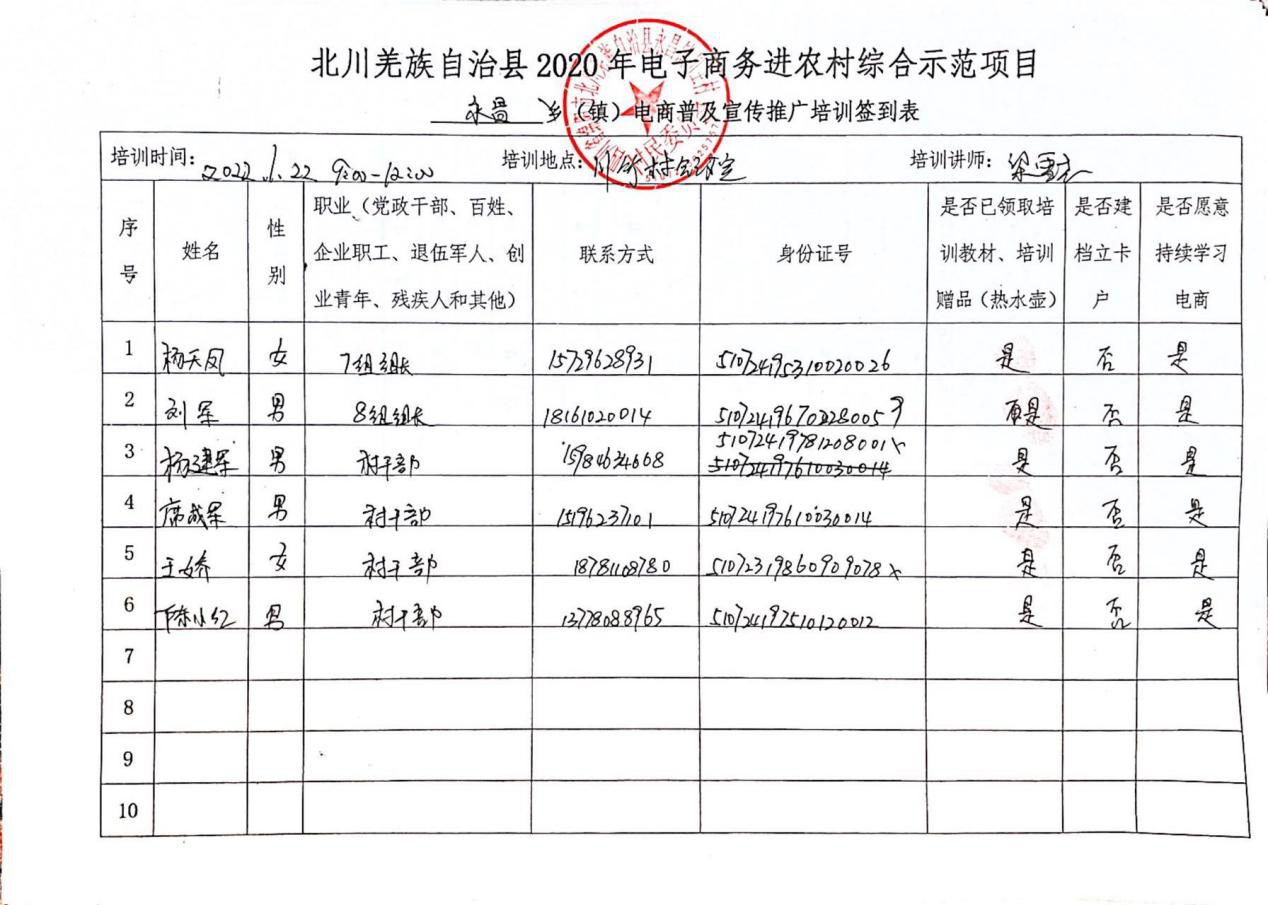 北川羌族自治县2020年电子商务进农村综合示范项目
永昌 乡（镇）电商普及宣传推广培训签到表
培训时间：2022.1.22 9:00-12:00 培训地点：村会议室 培训讲师：梁
序号 姓名 性别 职业（党政干部、百姓、企业职工、退伍军人、创业青年、残疾人和其他） 联系方式 身份证号 是否已领取培训教材、培训赠品（热水壶） 是否建档立卡户 是否愿意持续学习电商
1 杨天凤 女 7组组长 15729628931 510724195310020026 是 否 是
2 刘军 男 8组组长 18161020014 是 否 是
3 杨建军 男 村干部 15984634668 51072419781208001x 510724197610030014 是 否 是
4 席成军 男 村干部 15196237101 510724197610030014 是 否 是
5 王娇 女 村干部 18781108780 51072319860909078x 是 否 是
6 陈小红 男 村干部 13778088965 510724197510120012 是 否 是
7
8
9
10